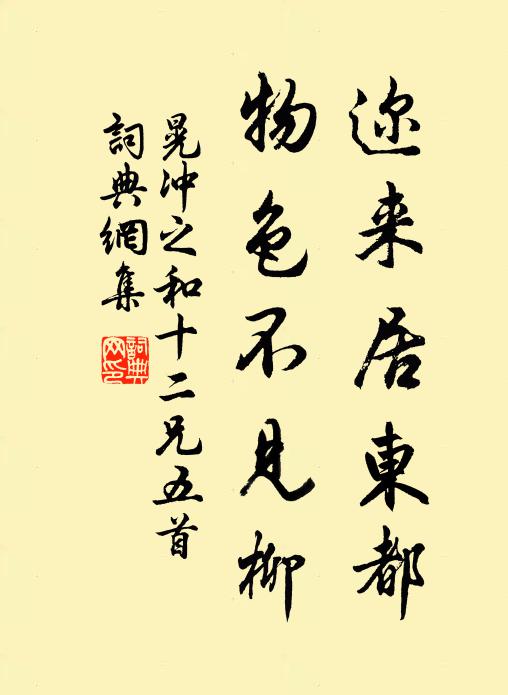 迩来居東都
物色不見柳
晃冲之和十二兄五首
詞典網集
詞典
网印